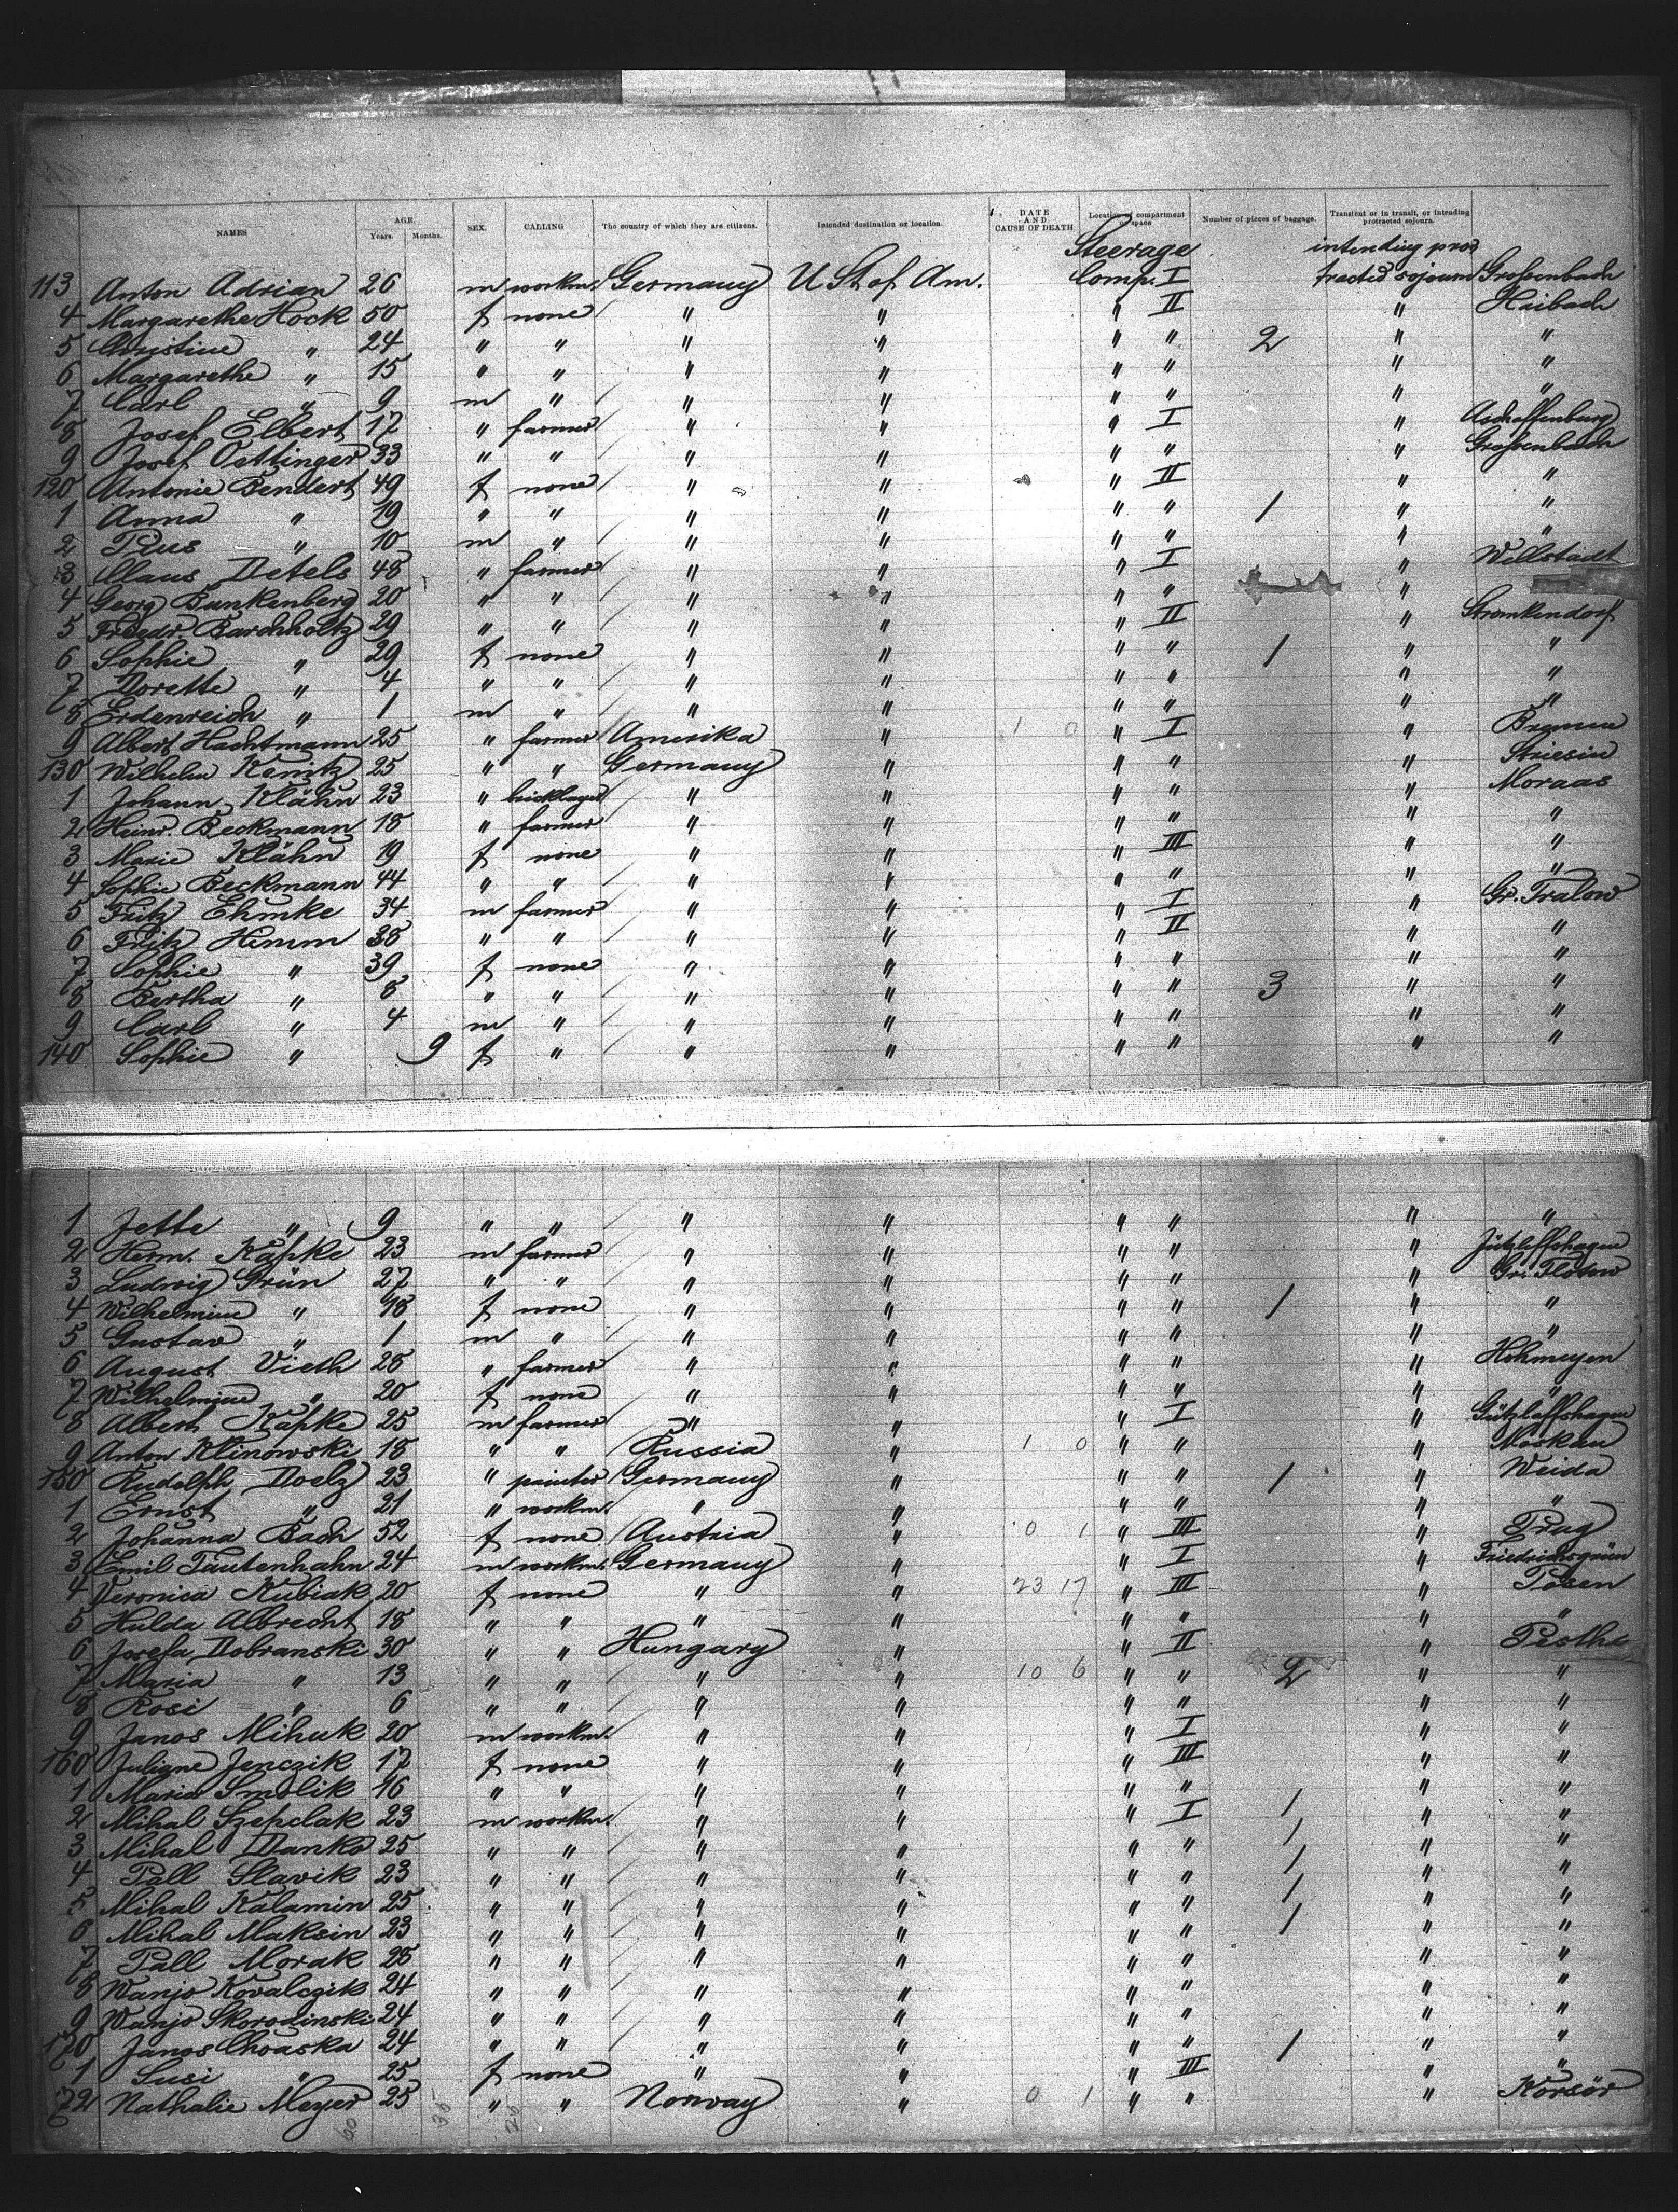 NAMES AGE. Years. Months. SEX. CALLING The country of which they are citizens. Intended destination or location. DATE AND CAUSE OF DEATH Location of compartment or space Number of pieces of baggage. Transient or in transit, or intending protracted sojourn.
Steerage intending pro-
113 Anton Adrian 26 m workm. Germany U St of Am. Comp. I tracted sojourn Großenbach
4 Margarethe Hock 50 f none " " " II " Haibach
5 Christine " 24 " " " " " " 2 " "
6 Margarethe " 15 " " " " " " " "
7 Carl " 9 m " " " " " " "
8 Josef Elbert 17 " farmer " " " I " Aschaffenburg
9 Josef Oettinger 33 " " " " " " " Großenbach
120 Antonie Bendert 49 f none " " " II " "
1 Anna " 19 " " " " " " 1 " "
2 Pius " 10 m " " " " " " "
3 Claus Detels 48 " farmer " " " I " Willstadt
4 Georg Bunkenberg 20 " " " " " " "
5 Friedr. Barchholtz 29 " " " " " II " Stromkendorf
6 Sophie " 29 f none " " " " 1 " "
7 Dorette " 4 " " " " " " " "
8 Erdenreich " 1 m " " " " " " "
9 Albert Hachtmann 25 " farmer Amerika " 1 0 " I " Bremen
130 Wilhelm Kenitz 25 " " Germany " " " " Striesin
1 Johann Klähn 23 " bricklayer " " " " " Moraas
2 Heinr. Beckmann 18 " farmer " " " " " "
3 Marie Klähn 19 f none " " " III " "
4 Sophie Beckmann 44 " " " " " " " "
5 Fritz Ehmke 34 m farmer " " " I " Gr. Tralow
6 Fritz Hemm 38 " " " " " II " "
7 Sophie " 39 f none " " " " " "
8 Bertha " 8 " " " " " " 3 " "
9 Carl " 4 m " " " " " " "
140 Sophie " 9 f " " " " " " "
1 Jette " 9 " " " " " " " "
2 Herm. Käpke 23 m farmer " " " " " Jützlaffshagen
3 Ludwig Grün 27 " " " " " " " Gr. Flotow
4 Wilhelmine " 18 f none " " " " 1 " "
5 Gustav " 1 m " " " " " " "
6 August Vieth 28 " farmer " " " " " Hohmuyen
7 Wilhelmine " 20 f none " " " " " "
8 Albert Käpke 25 m farmer " " " I " Gützlaffshagen
9 Anton Klinowski 18 " " Russia " 1 0 " " " Moskau
150 Rudolph Doelz 23 " painter Germany " " " 1 " Weida
1 Ernst " 21 " workm. " " " " " "
2 Johanna Bach 52 f none Austria " 0 1 " III " Prag
3 Emil Tautenhahn 24 m workm. Germany " " I " Friedrichsgrün
4 Veronica Kubiak 20 f none " " 23 17 " III " Posen
5 Hulda Albrecht 18 " " " " " " " "
6 Josefa Dobranski 30 " " Hungary " " II " Pesth
7 Maria " 13 " " " " 10 6 " " 2 " "
8 Rosi " 6 " " " " " " " "
9 Janos Mihuk 20 m workm. " " " I " "
160 Juliane Jenczik 17 f none " " " III " "
1 Maria Smolik 16 " " " " " " " "
2 Mihal Szepclak 23 m workm. " " " I 1 " "
3 Mihal Danko 25 " " " " " " 1 " "
4 Pall Slavik 23 " " " " " " 1 " "
5 Mihal Kalamin 25 " " " " " " 1 " "
6 Mihal Maksin 23 " " " " " " 1 " "
7 Pall Morak 28 " " " " " " " "
8 Wanjo Kovalczik 24 " " " " " " " "
9 Wanjo Skorodinski 24 " " " " " " " "
170 Janos Chvaska 24 " " " " " " 1 " "
1 Susi " 25 f none " " " III " "
72 Nathalie Meyer 25 " " Norway " 0 1 " " " Korsör